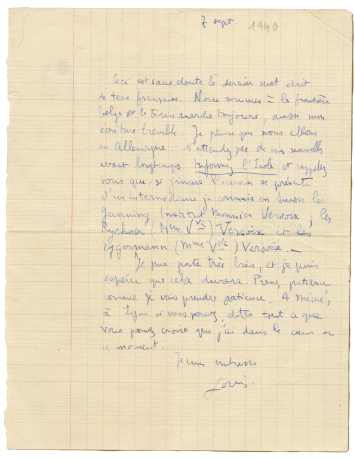 7 sept. 1940
Ceci est sans doute le dernier mot écrit
de terre française. Nous sommes à la frontière
belge et le train marche toujours, aussi mon
écriture tremble. Je pense que nous allons
en Allemagne. N'attendez pas de nos nouvelles
avant longtemps. Informez l'Ecole et rappelez
vous que, si jamais l'occasion se présente
d'un intermédiaire je connais en Suisse les
Gunning, Institut Monnier Versoix, les
Rychner (Mme Vve) Versoix et les
Eggermann (Mme Vve) Versoix. —
Je me porte très bien, et je puis
espérer que cela durera. Prenez patience
comme je vais prendre patience. A
à Lyon si vous pouvez, dites tout ce que
vous pouvez croire que j'ai dans le cœur en
ce moment.
Je vous embrasse
Louis.